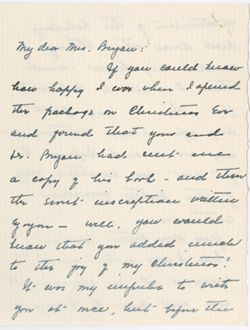 My dear Mrs. Bryan:
If you could know
how happy I was when I opened
the package on Christmas Eve
and found that you and
Dr. Bryan had sent me
a copy of his book - and then
the sweet inscription written
by you - well, you would
know that you added much
to the joy of my Christmas!
It was my impulse to write
you at once, but before the